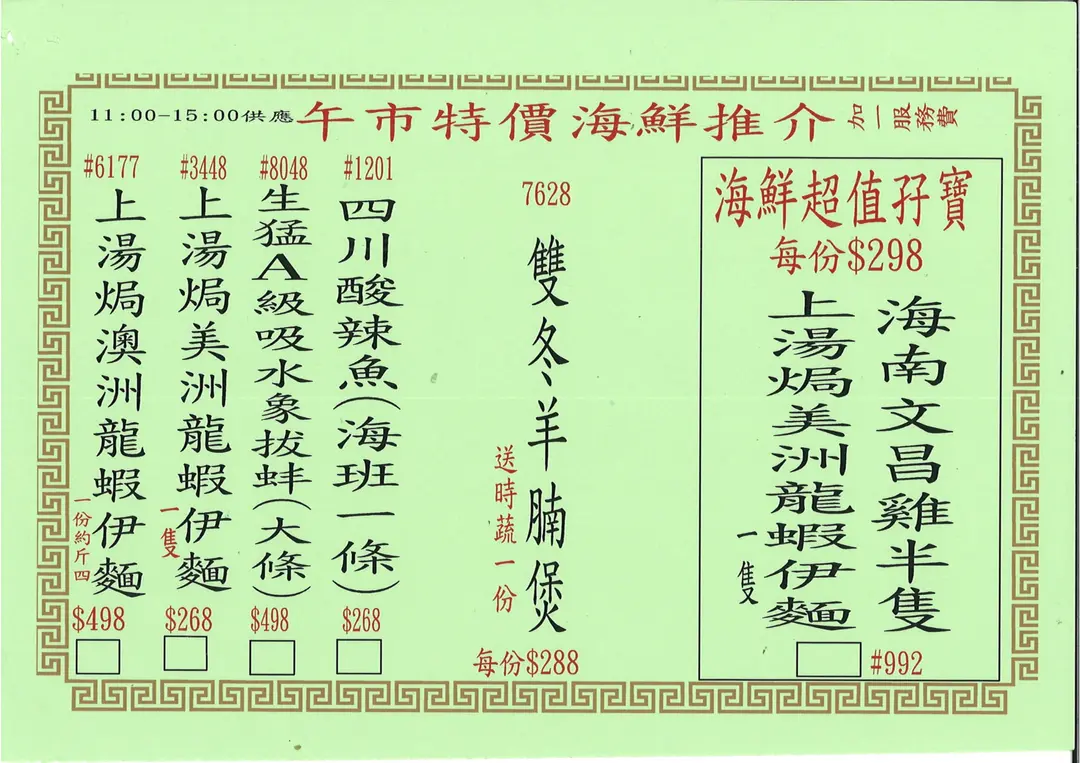 11:00-15:00供應 午市特價海鮮推介 加一服務費
海鮮超值孖寶
每份$298
海南文昌雞半隻
上湯焗美洲龍蝦伊麵
一隻
#992
7628
雙冬羊腩煲
送時蔬一份
每份$288
#1201
四川酸辣魚(海班一條)
$268
#8048
生猛A級吸水象拔蚌(大條)
$498
#3448
上湯焗美洲龍蝦伊麵
一隻
$268
#6177
上湯焗澳洲龍蝦伊麵
一份約斤四
$498